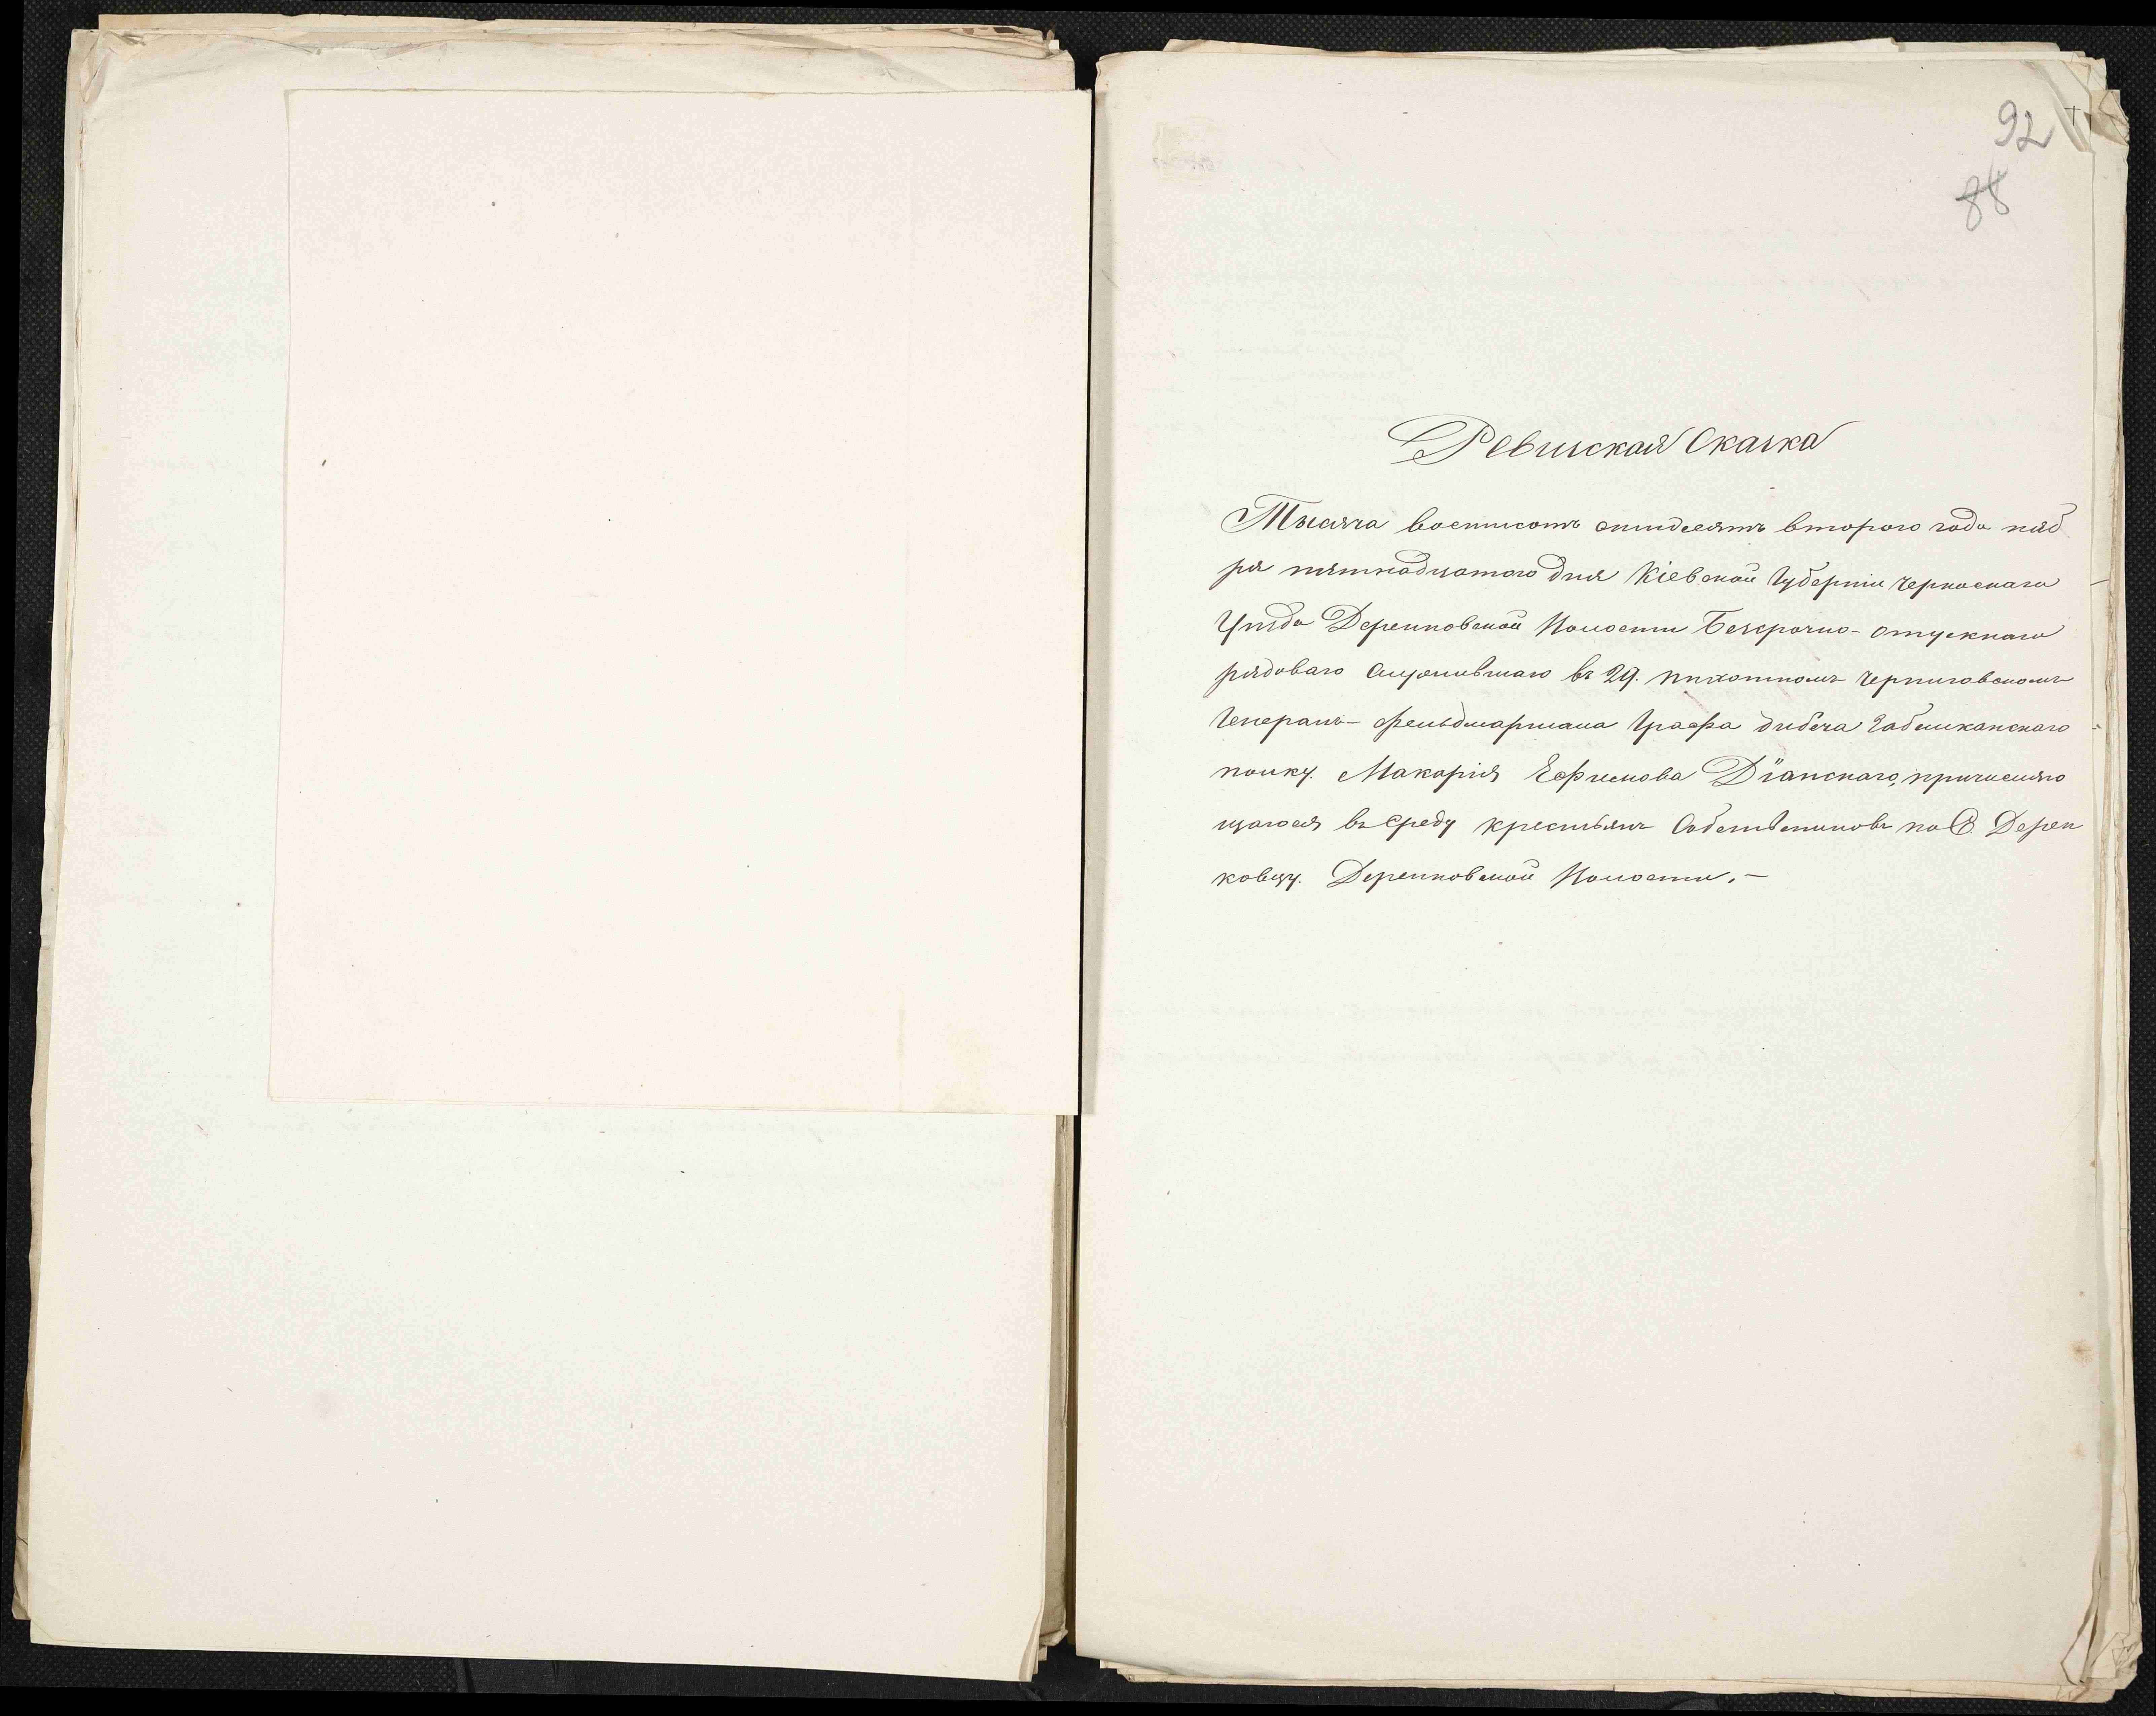 92
88
Ревизская Сказка
Тысяча восемьсотъ семидесятъ втораго года нояб
ря пятнадцатаго дня Кіевской Губерніи Черкаскаго
Уѣзда Деренковской Волости Безсрочно-отпускнаго
рядоваго служившаго въ 29. пѣхотномъ Черниговскомъ
Генералъ-фельдмаршала Графа Дибича Забалканскаго
полку. Макарія Ефимова Діанскаго, причисляю
щагося въ среду крестьянъ Собственниковъ по С. Дерен
ковцу. Деренковской Волости.-